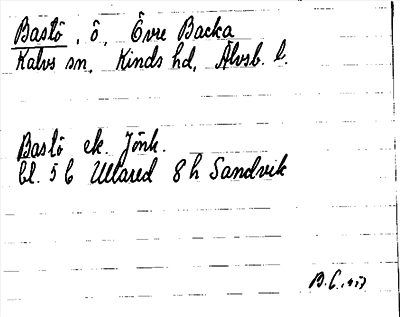 Bastö, ö, Övre Backa
Kalvs sn, Kinds hd, Älvsb. l.
Bastö ek. Jönk.
bl. 56 Ullared 8h Sandvik
B.C.